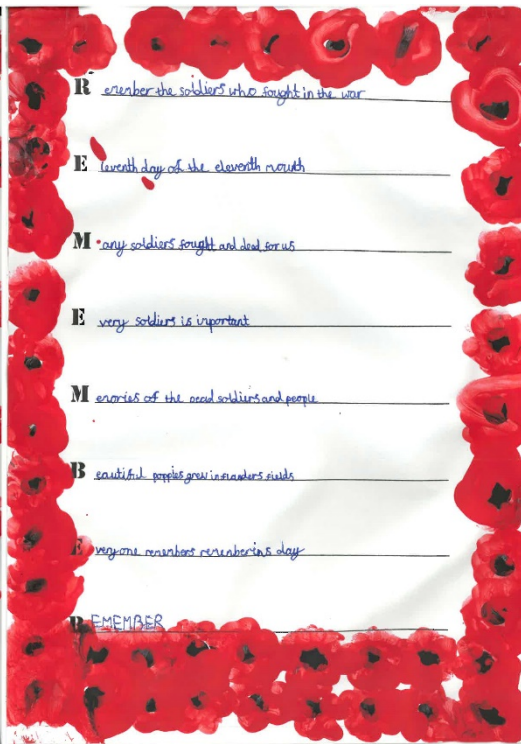 Remember the soldiers who fought in the war
Eleventh day of the eleventh mouth
Many soldiers fought and dead for us
Every soldiers is inportant
Memories of the dead soldiers and people
Beautiful poppies grew in flanders fields
Everyone remembers remembering day
REMEMBER